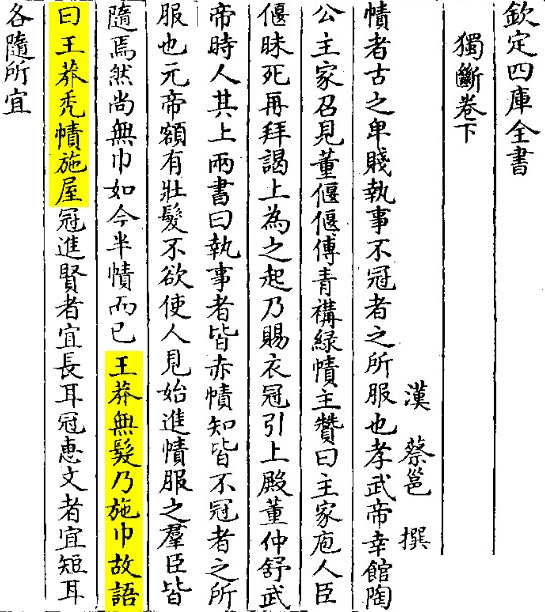 欽定四庫全書
獨斷卷下
漢 蔡邕 撰
幘者古之卑賤執事不冠者之所服也孝武帝幸館陶
公主家召見董偃偃傅青褠綠幘主贊曰主家庖人臣
偃昧死再拜謁上為之起乃賜衣冠引上殿董仲舒武
帝時人其上兩書曰執事者皆赤幘知皆不冠者之所
服也元帝額有壯髮不欲使人見始進幘服之羣臣皆
隨焉然尚無巾如今半幘而已王莽無髮乃施巾故語
曰王莽禿幘施屋冠進賢者宜長耳冠惠文者宜短耳
各隨所宜